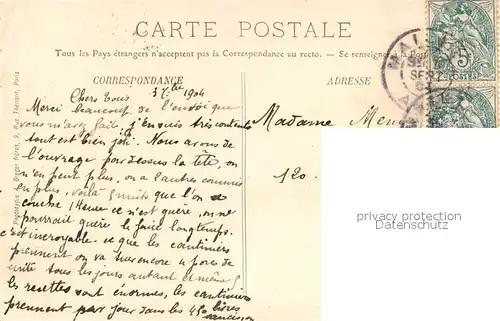 CARTE POSTALE
Tous les Pays étrangers n'acceptent pas la Correspondance au recto. — Se renseigner à la Poste
CORRESPONDANCE
ADRESSE
3 7bre 1904
Chers tous
Merci beaucoup de l'envoi que
vous m'avez fait. J'en suis très contente
tout est bien joli. Nous avons de
l'ouvrage par dessus la tête, on
n'en peut plus, on a l'autre
en plus, voilà 3 nuits que l'on se
couche 1 heure ce n'est guère, on ne
pourrait guère le faire longtemps.
c'est incroyable ce que les cantiniers
prennent on va sur encore
suite tous les jours autant et même
les recettes sont énormes, les cantiniers
prennent par jour dans les 450 litres
Madame
120.
privacy protection
Datenschutz